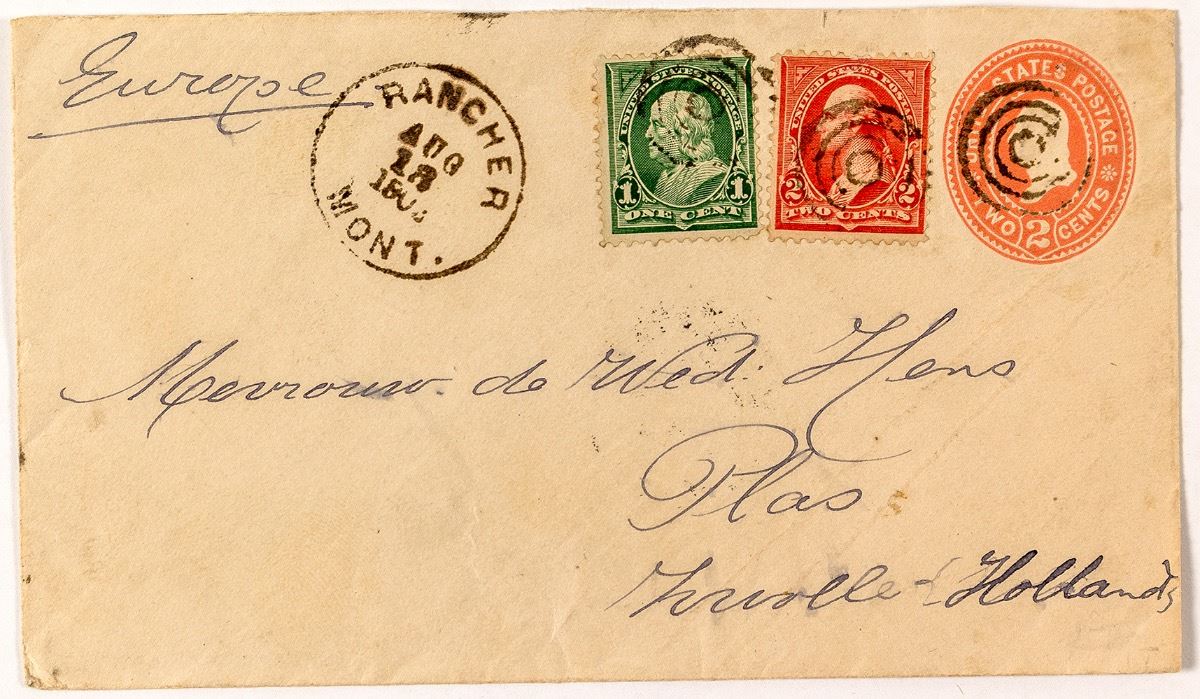 Europe
RANCHER
AUG
MONT.
UNITED STATES POSTAGE
1 1
ONE CENT
UNITED STATES POSTAGE
2 2
TWO CENTS
UNITED STATES POSTAGE
TWO 2 CENTS
Mevrouw. de Wed. Hens
Plas
Zwolle (Holland)